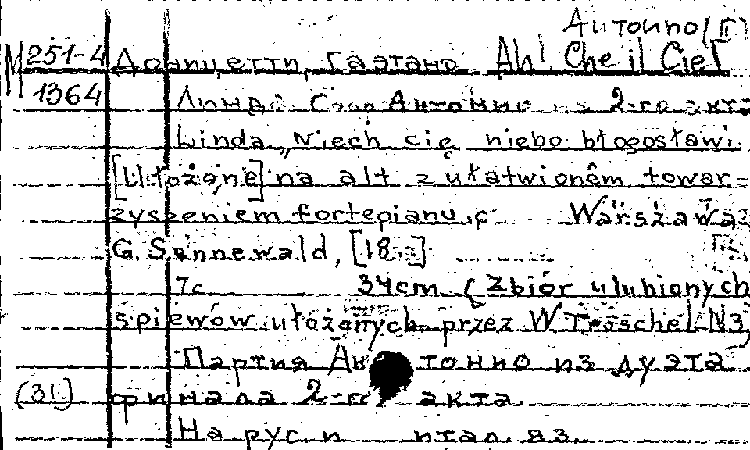 Антонио (Г)
М 251-4 Доницетти, Гаэтано Ah! Che il Ciel
1364 Линда. Соло Антонио из 2-го акта
Linda „Niech cię niebo błogosławi
[Ułożone] na alt z ułatwioném towar-
zyszeniem fortepianu. Warszawa:
G. Sennewald, [18..]
7 с 34cm (Zbiór ulubionych
śpiewów ułożonych przez W Troschel N3)
Партия Антонио из дуэта
(31) финала 2-го акта
На рус и итал. яз.